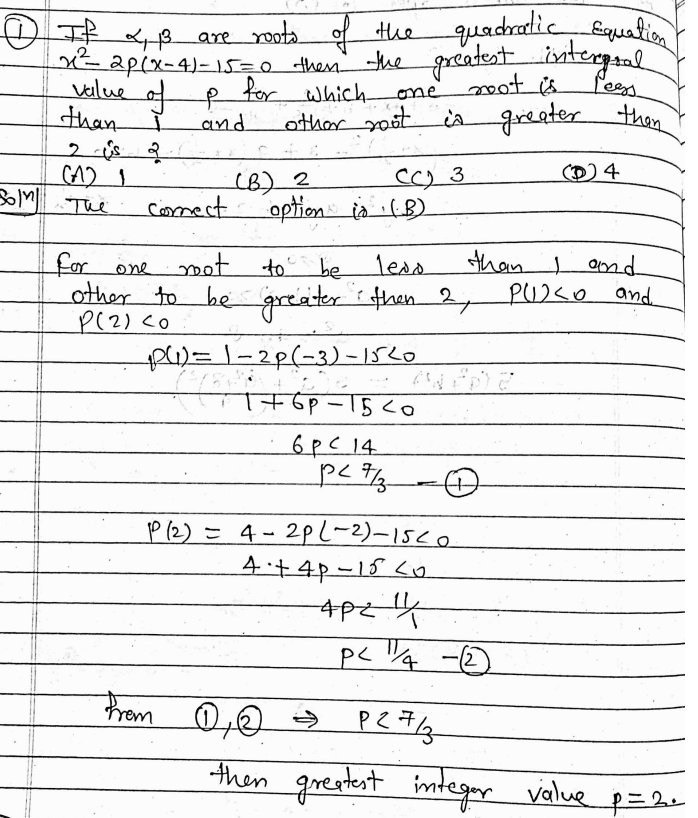 ① If α, β are roots of the quadratic Equation
x² - 2p(x-4)-15=0 then the greatest intergral
value of p for which one root is less
than 1 and other root is greater than
2 is ?
(A) 1 (B) 2 (C) 3 (D) 4
Solⁿ The correct option is (B)
For one root to be less than 1 and
other to be greater then 2, P(1)<0 and
P(2)<0
p(1) = 1-2p(-3)-15<0
1+6p-15<0
6p<14
p<7/3 - ①
P(2) = 4-2p(-2)-15<0
4+4p-15<0
4p<11/1
p<11/4 -②
from ①,② ⇒ p<7/3
then greatest integer value p=2.